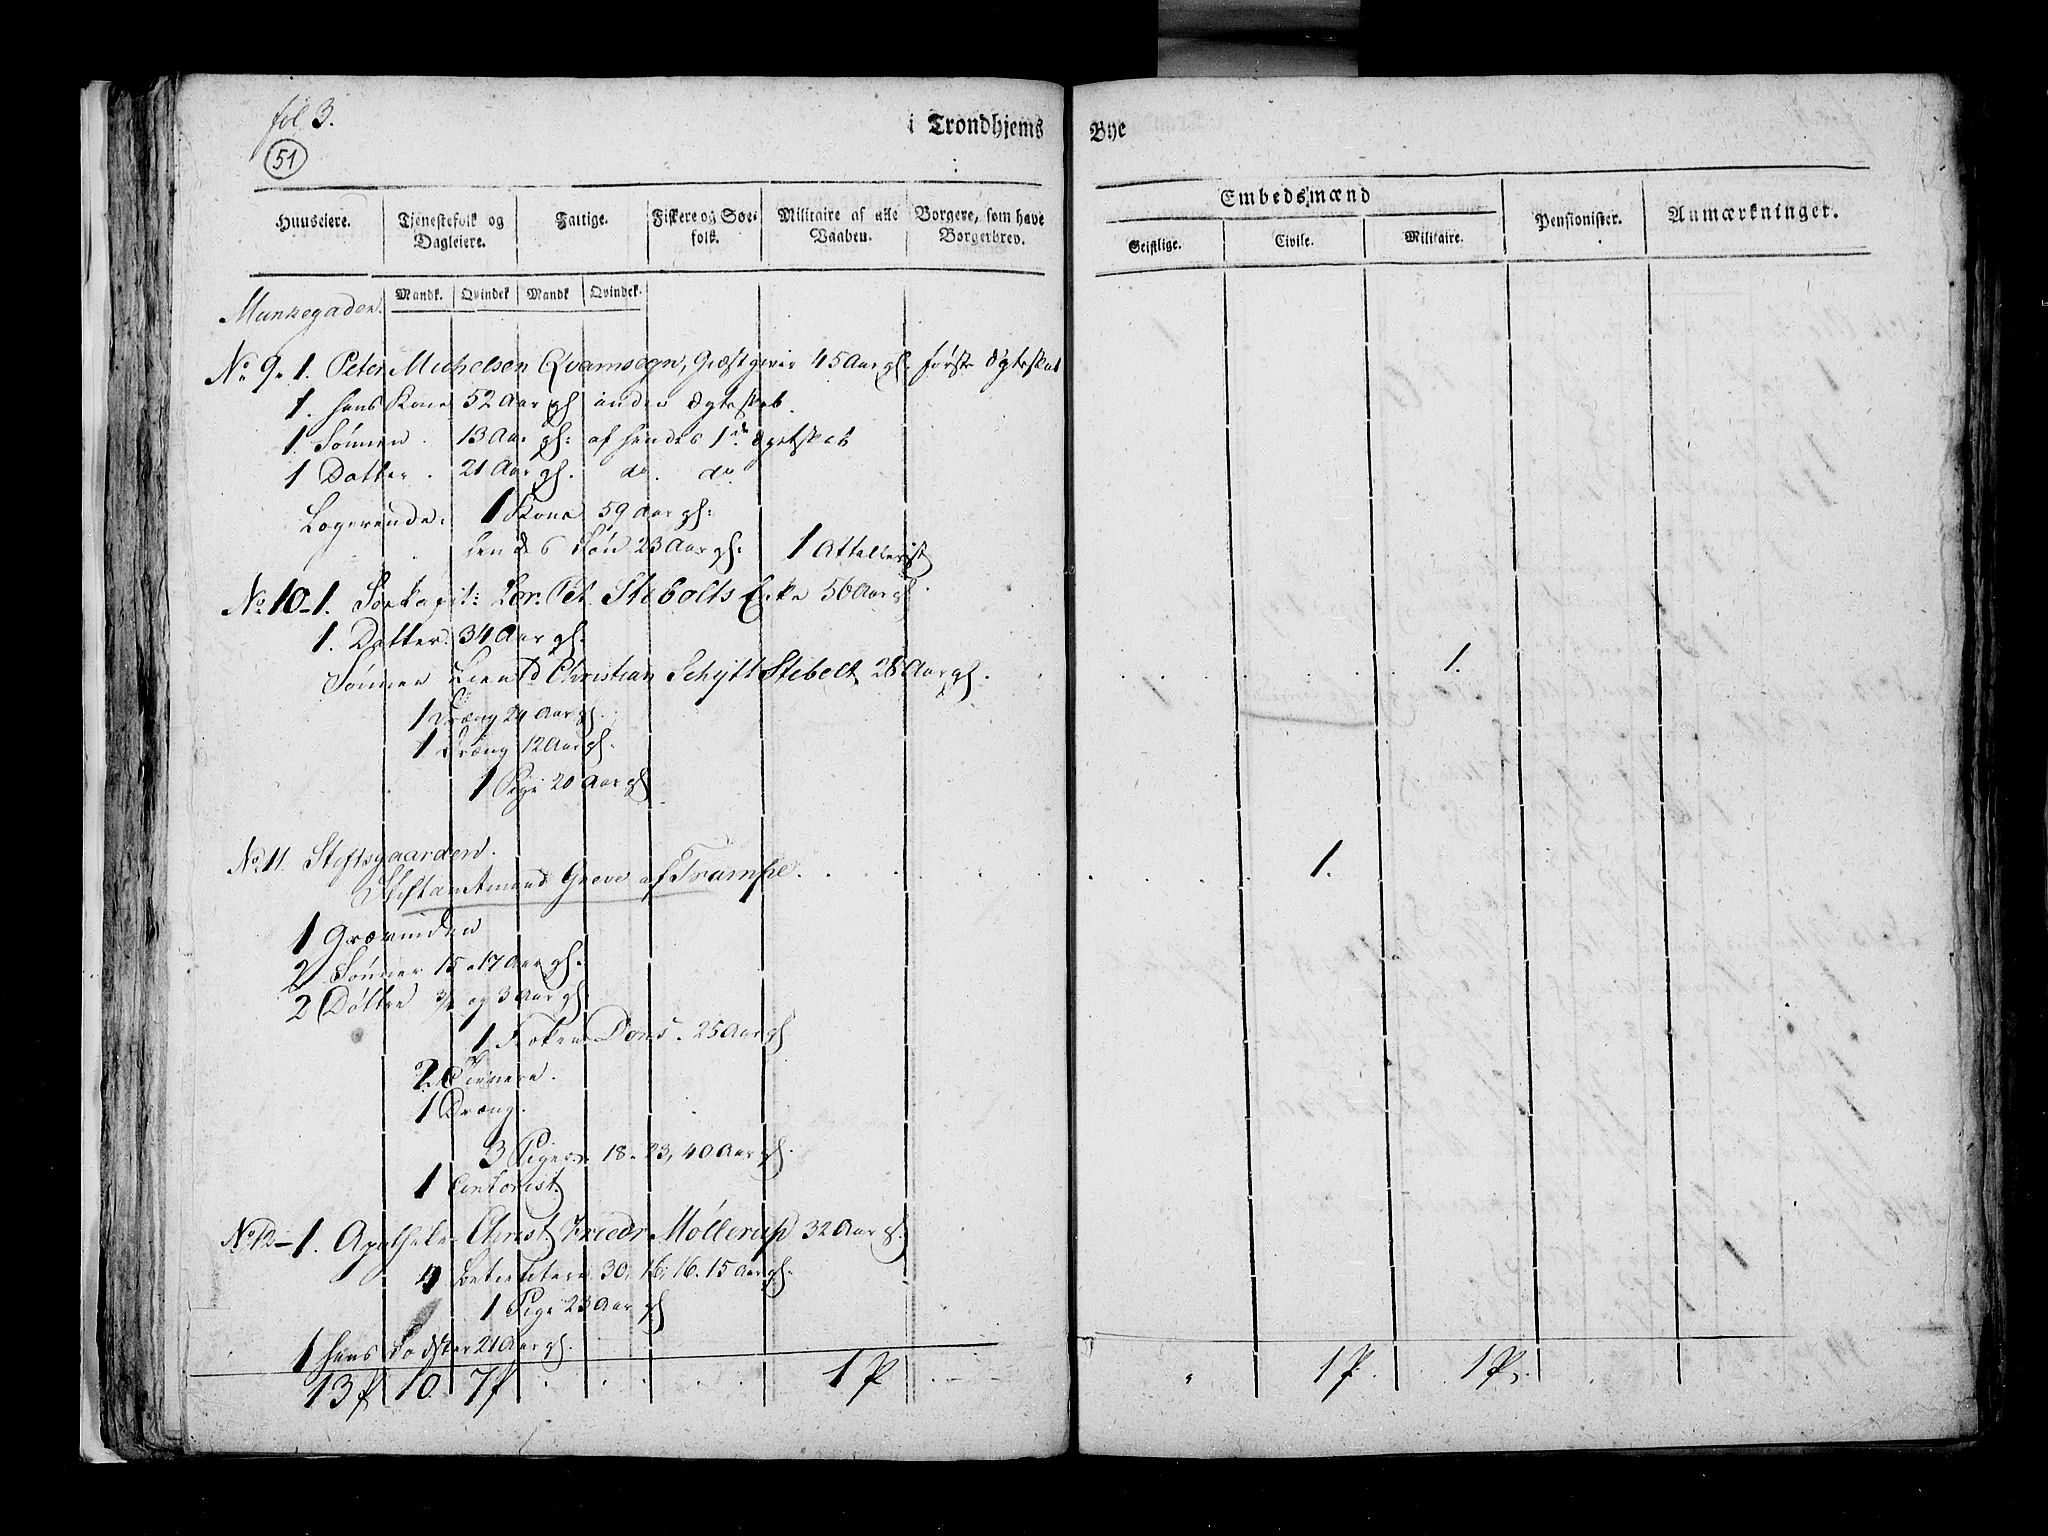 fol 3.
51
i Trondhjems Bye
Huuseiere.
Tjenestefolk og Dagleiere.
Fattige.
Fiskere og Søefolk.
Militaire af alle Vaaben.
Borgere, som have Borgerbrev.
Embedsmænd
Geistlige.
Civile.
Militaire.
Pensionister.
Anmærkninger.
Mandk. Qvindek Mandk Qvindek.
Munkegaden.
No 9. 1. Peter Michelsen Qvamsogn, Giæstgiver 45 Aar gl. første Ægteskab
1. hans Kone 52 Aar gl anden Ægteskab.
1 Sønnen. 13 Aar gl: af hendes 1de Ægetskab
1 Datter. 21 Aar gl. do. do.
Logerende: 1 Kone 59 Aar gl:
hendes Søn 23 Aar gl: 1 Attellerist
No 10-1. Søekapit: Lor. Pet. Stibolts Enke 56 Aar gl.
1. Datter. 34 Aar gl.
Sønnen Lieut Christian Schøtt Stibolt 28 Aar gl. 1.
1 Dræng 24 Aar gl.
1 Dræng 12 Aar gl.
1 Pige 20 Aar gl
No 11. Stiftsgaarden.
Stiftamtmand Greve af Trampe. 1.
1 Grævinden
2 Sønner 15 a 17 Aar gl.
2 Døttre 3/4 og 3 Aar gl.
1. Frøken Dons. 25 Aar gl
2 Tienere.
1 Dræng.
3 Piger 18. 23, 40 Aar gl.
1 Contorist.
No 12-1. Apotheker Christ Friedr Møllerup 32 Aar gl.
4 Betientere 30. 16. 16. 15 Aar gl.
1 Pige 23 Aar gl
1 hans Sødster 21 Aar gl.
13 p 10. 7 p 1 P. 1 P. 1 P.